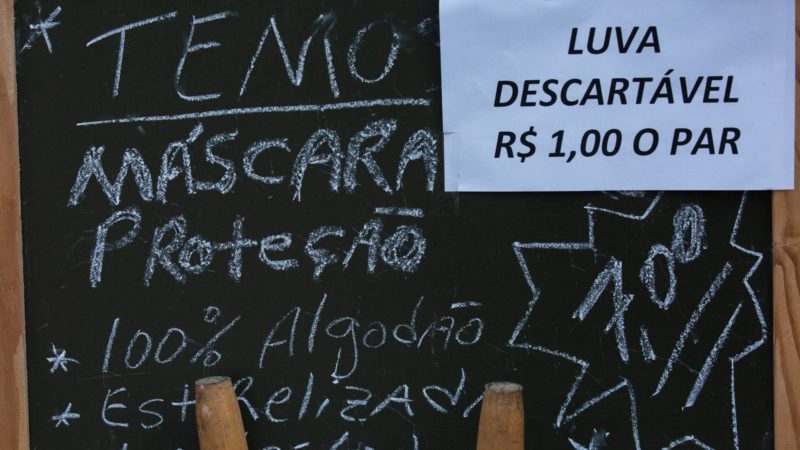 * TEMO
MÁSCARA
PROTEÇÃO
* 100% Algodão
* EstRelizada
LUVA
DESCARTÁVEL
R$ 1,00 O PAR
7,00